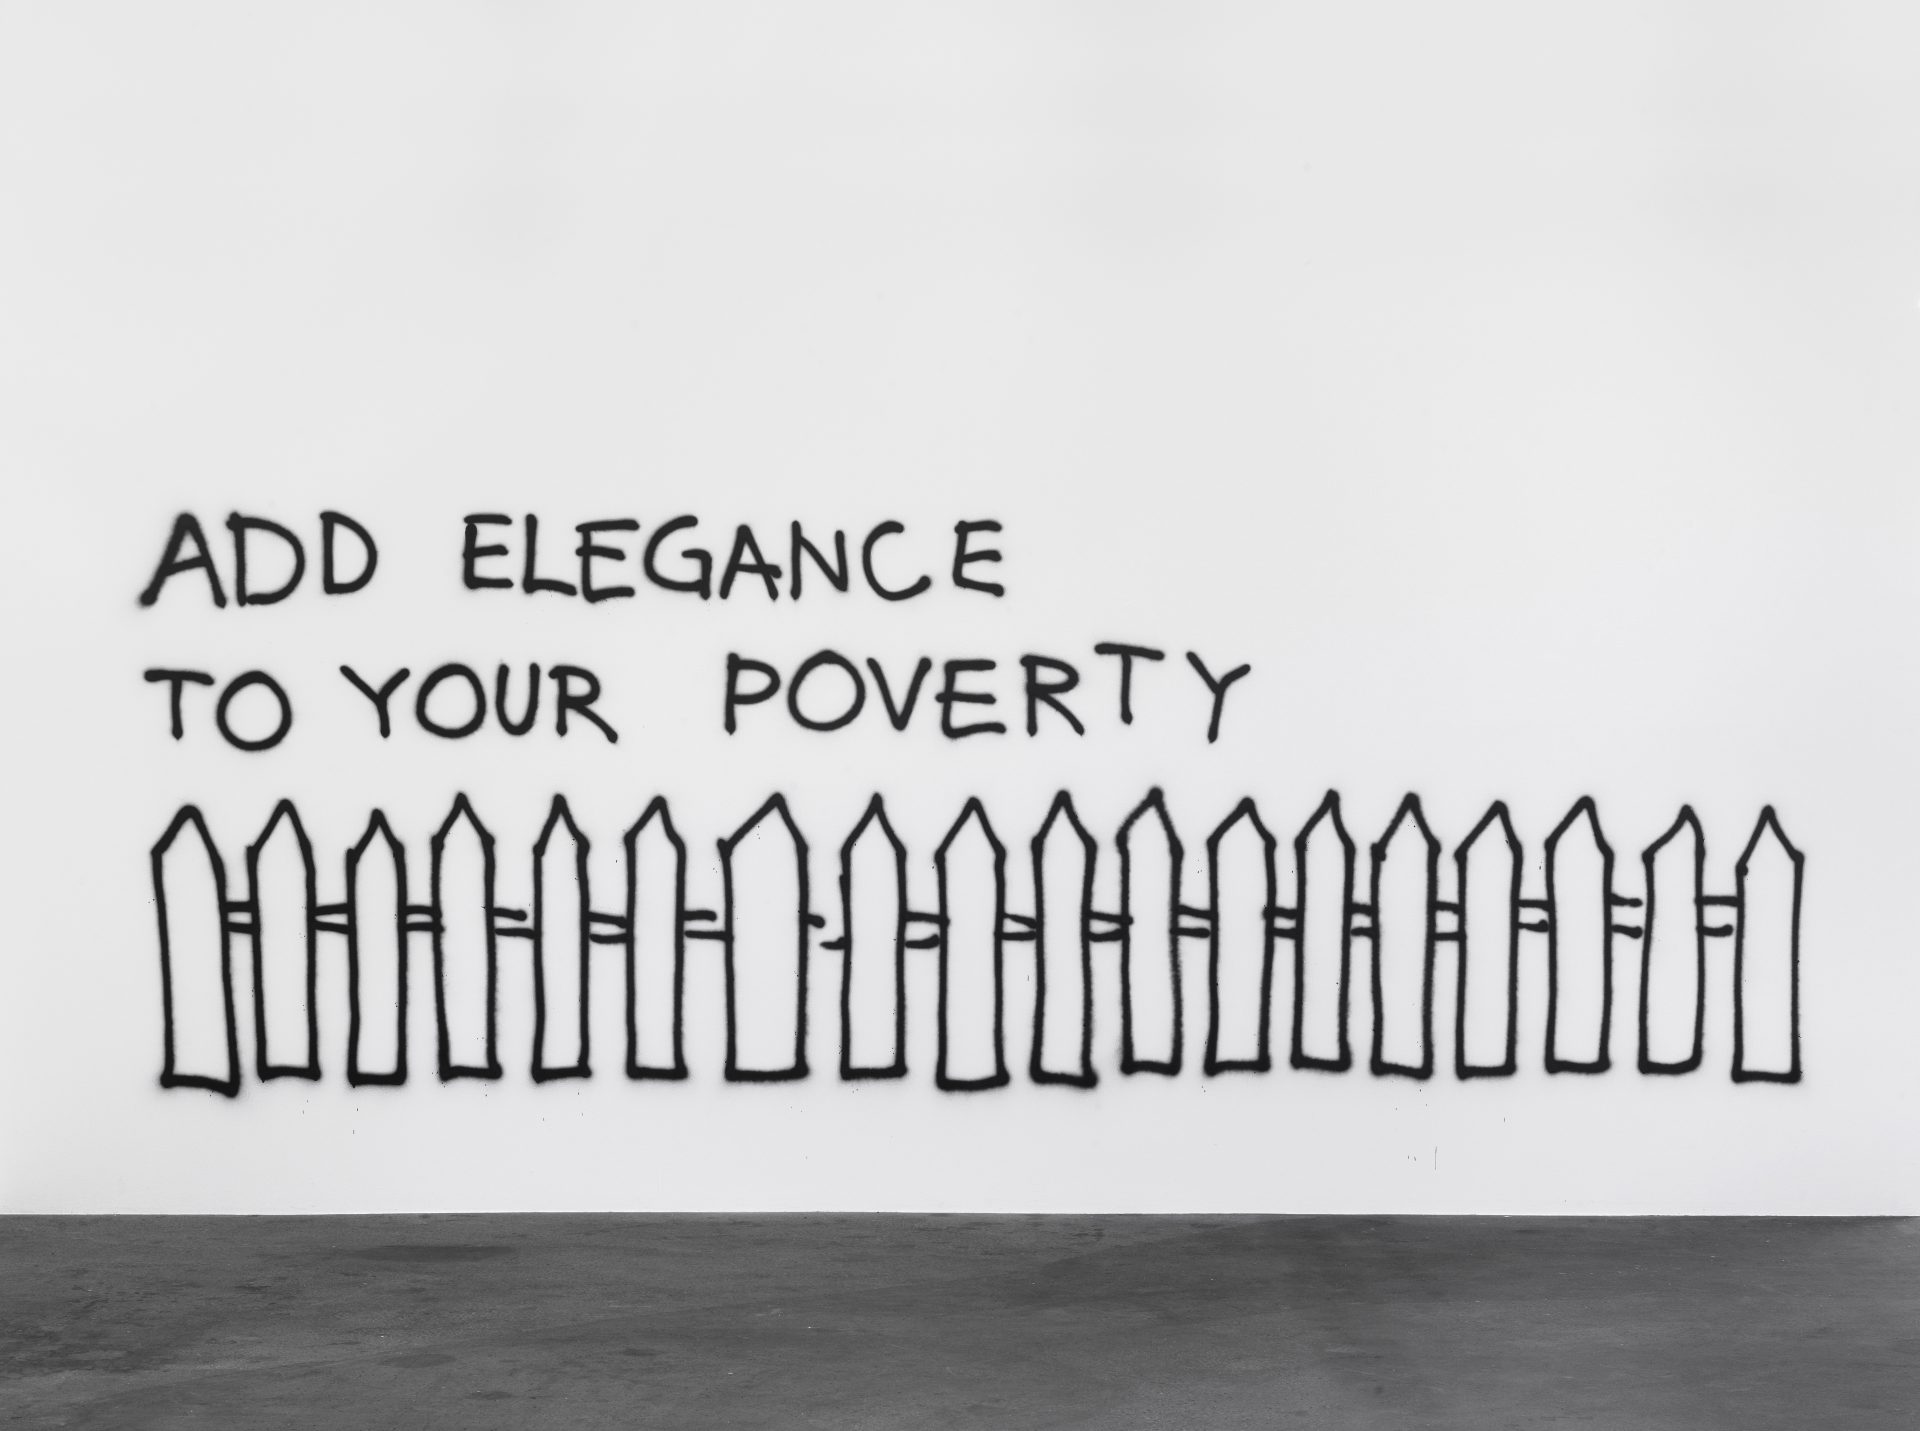 ADD ELEGANCE
TO YOUR POVERTY